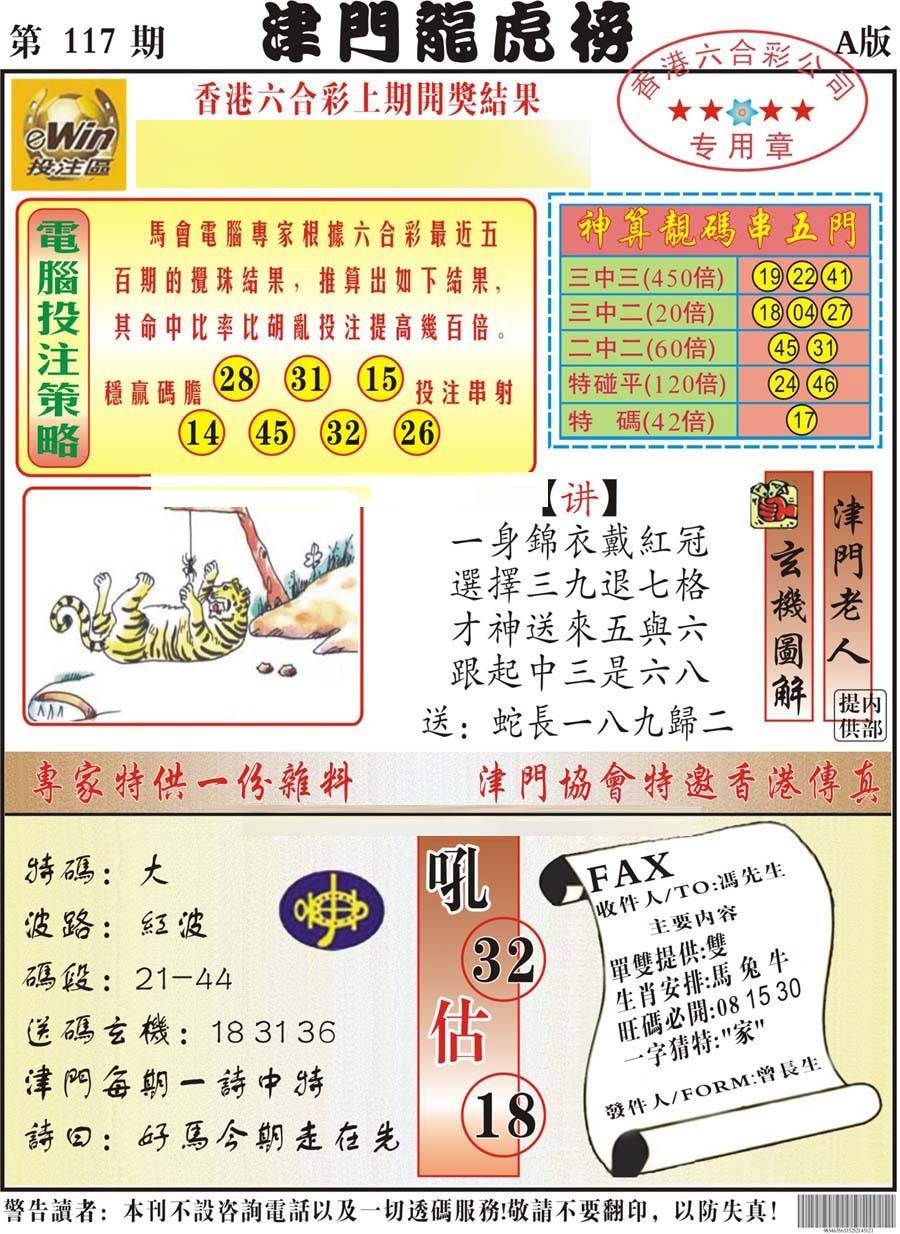 第 117 期
津門龍虎榜
A版
香港六合彩公司
★★★★
专用章
eWin
投注區
香港六合彩上期開獎結果
電腦投注策略
馬會電腦專家根據六合彩最近五
百期的攪珠結果，推算出如下結果，
其命中比率比胡亂投注提高幾百倍。
穩贏碼膽 28 31 15 投注串射
14 45 32 26
神算靚碼串五門
三中三(450倍) 19 22 41
三中二(20倍) 18 04 27
二中二(60倍) 45 31
特碰平(120倍) 24 46
特 碼(42倍) 17
【讲】
一身錦衣戴紅冠
選擇三九退七格
才神送來五與六
跟起中三是六八
送：蛇長一八九歸二
玄機圖解
津門老人
内部提供
專家特供一份雜料
津門協會特邀香港傳真
特碼：大
波路：紅波
碼段：21—44
送碼玄機：18 31 36
津門每期一詩中特
詩曰：好馬今期走在先
吼
32
估
18
FAX
收件人/TO:馮先生
主要内容
單雙提供:雙
生肖安排:馬 兔 牛
旺碼必開:08 15 30
一字猜特:"家"
發件人/FORM:曾長生
警告讀者：本刊不設咨詢電話以及一切透碼服務!敬請不要翻印，以防失真!